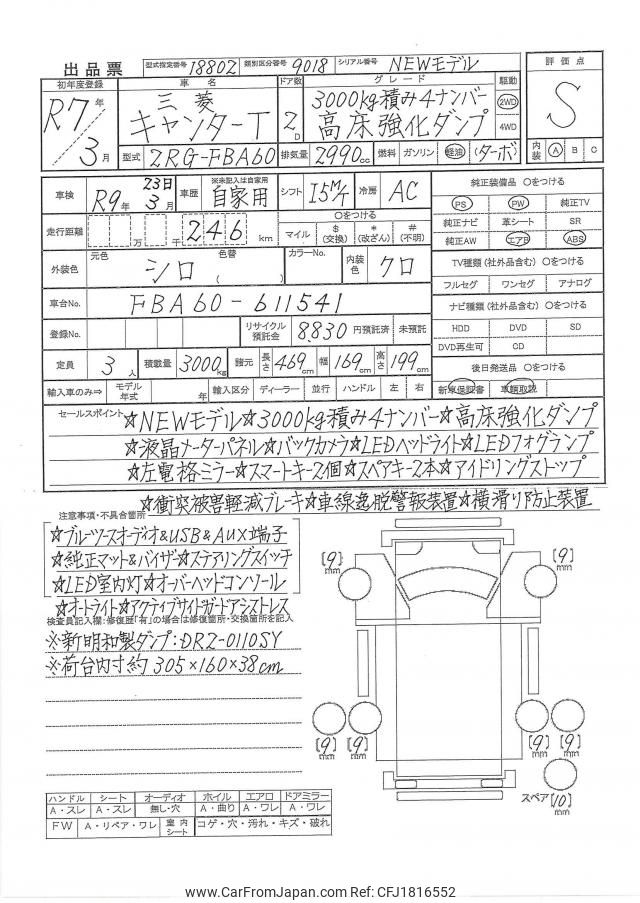 出品票 型式指定番号 18802 類別区分番号 9018 シリアル番号 NEWモデル
初年度登録 車名 ドア数 グレード 駆動 評価点
R7年/3月 三菱 キャンターT 2D 3000kg積み4ナンバー 高床強化ダンプ 2WD 4WD S
型式 2RG-FBA60 排気量 2990cc 燃料 ガソリン 軽油 (ターボ) 内装 A B C
車検 R9年 23日 3月 車歴 ※未記入は自家用 自家用 シフト I5M/T 冷房 AC
純正装備品 ○をつける
PS PW 純正TV
純正ナビ 革シート SR
純正AW エアB ABS
走行距離 万 千 246 km ○をつける マイル $(交換) *(改ざん) #(不明)
TV種類(社外品含む) ○をつける
フルセグ ワンセグ アナログ
外装色 元色 シロ 色替( ) カラーNo. 内装色 クロ
ナビ種類(社外品含む) ○をつける
HDD DVD SD
DVD再生可 CD
車台No. FBA60-611541
登録No. リサイクル預託金 8,830 円預託済 未預託
定員 3人 積載量 3000kg 諸元 長さ 469cm 幅 169cm 高さ 199cm
後日発送品 ○をつける
新車保証書 車輌取説
輸入車のみ⇒ モデル年式 年 輸入区分 ディーラー 並行 ハンドル 左 右
セールスポイント ☆NEWモデル☆3000kg積み4ナンバー☆高床強化ダンプ
☆液晶メーターパネル☆バックカメラ☆LEDヘッドライト☆LEDフォグランプ
☆左電格ミラー☆スマートキー2個☆スペアキー2本☆アイドリングストップ
☆衝突被害軽減ブレーキ☆車線逸脱警報装置☆横滑り防止装置
注意事項・不具合箇所
☆ブルーツースオーディオ&USB&AUX端子
☆純正マット&バイザー☆ステアリングスイッチ
☆LED室内灯☆オーバーヘッドコンソール
☆オートライト☆アクティブサイドガードアシストレス
検査員記入欄:修復歴「有」の場合は修復箇所・交換箇所を記入
※新明和製ダンプ:DR2-0110SY
※荷台内寸約305×160×38cm
[9]mm [9]mm
[9]mm [9]mm [9]mm [9]mm
スペア [10]mm
ハンドル シート オーディオ ホイル エアロ ドアミラー
A・スレ A・スレ 無し・穴 A・曲り A・ワレ A・ワレ
FW A・リペア・ワレ 室内シート コゲ・穴・汚れ・キズ・破れ
www.CarFromJapan.com Ref: CFJ1816552